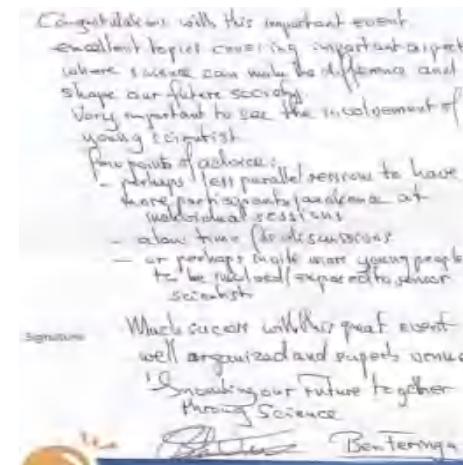 Congratulations with this important event.
excellent topics covering important aspect
where science can make the difference and
shape our future society.
Very important to see the involvement of
young scientist
few points of advice:
- perhaps less parallel sessions to have
more participants/audience at
individual sessions
- allow time for discussions
- or perhaps invite more young people
to be involved/exposed to senior
scientist
Signature
Much success with this great event
well organized and superb venue
our Future together
through Science
Ben Feringa